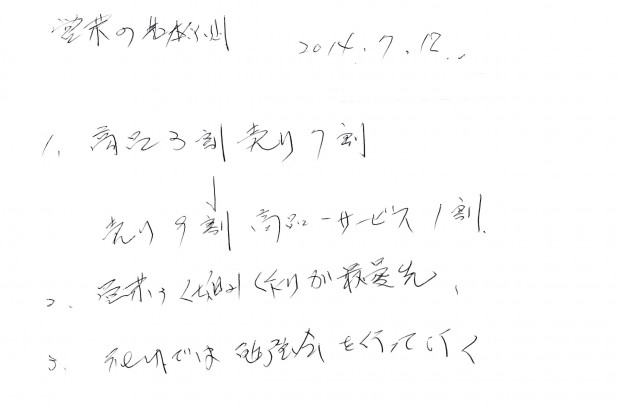 営業の基本行則 2014.7.12.
1. 商品3割 売り7割
↓
売り9割 商品-サービス1割.
2. 営業は仕組み作りが最優先.
3. では勉強会を行って行く